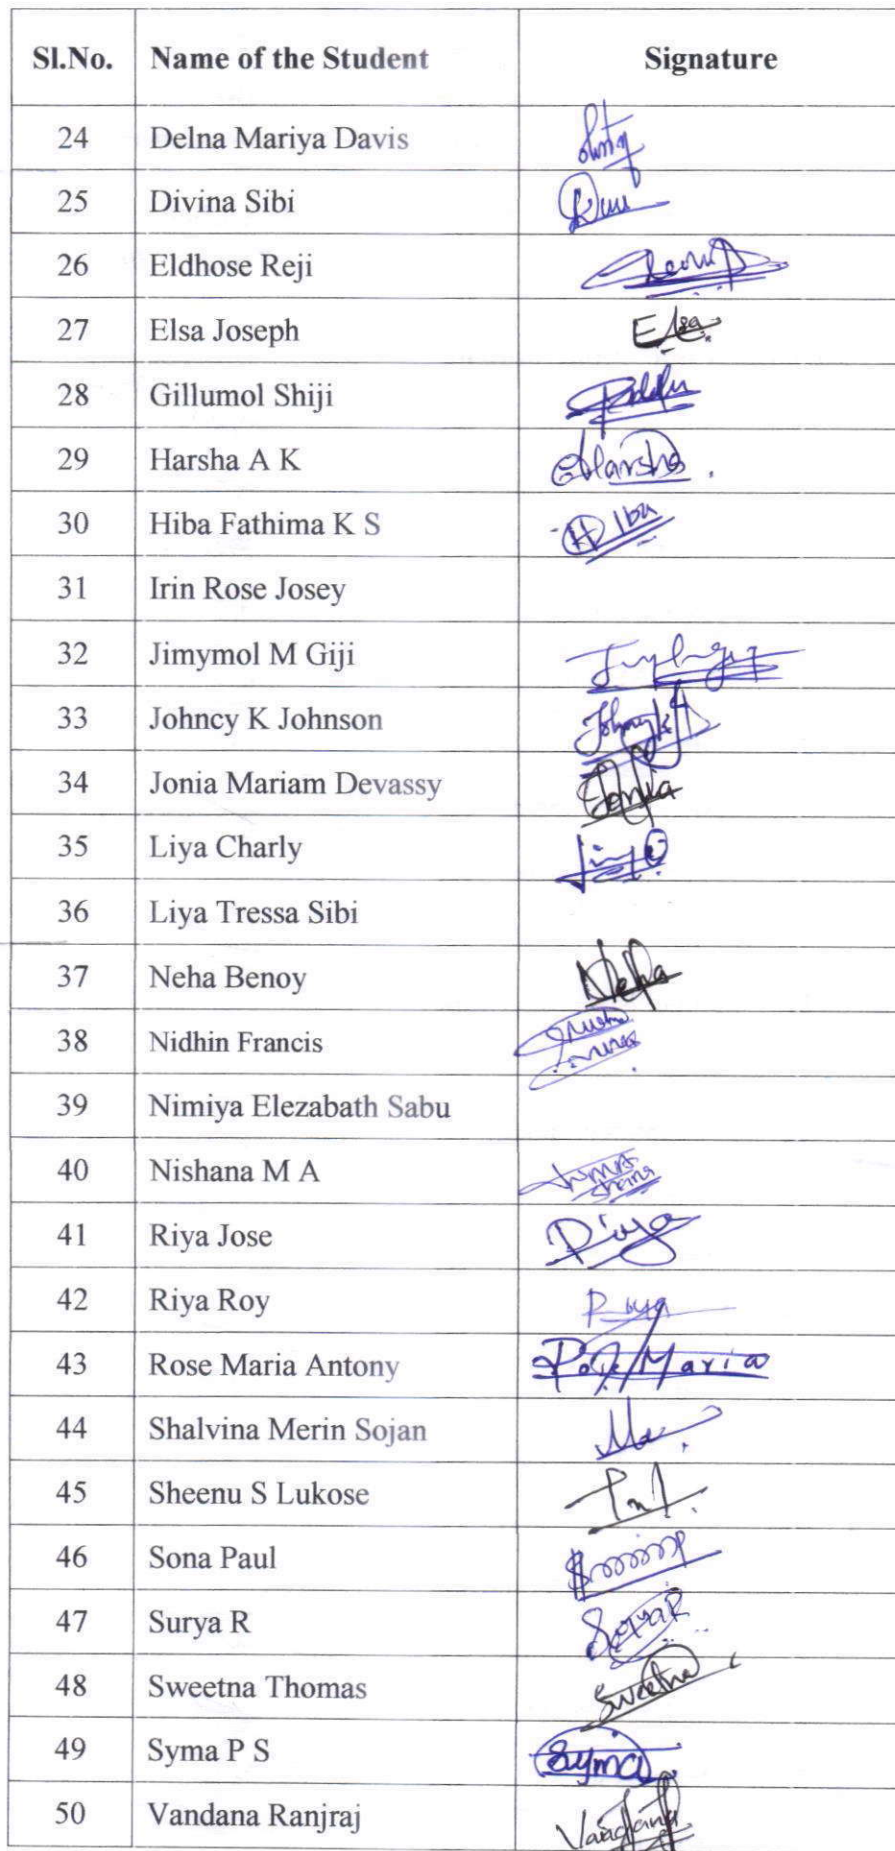 Sl.No. Name of the Student Signature
24 Delna Mariya Davis
25 Divina Sibi
26 Eldhose Reji
27 Elsa Joseph Elsa
28 Gillumol Shiji
29 Harsha A K Harsha
30 Hiba Fathima K S Hiba
31 Irin Rose Josey
32 Jimymol M Giji
33 Johncy K Johnson
34 Jonia Mariam Devassy Jonia
35 Liya Charly
36 Liya Tressa Sibi
37 Neha Benoy Neha
38 Nidhin Francis
39 Nimiya Elezabath Sabu
40 Nishana M A
41 Riya Jose Riya
42 Riya Roy Riya
43 Rose Maria Antony Rose Maria
44 Shalvina Merin Sojan
45 Sheenu S Lukose
46 Sona Paul
47 Surya R Surya R
48 Sweetna Thomas Sweetna
49 Syma P S Syma
50 Vandana Ranjraj Vandana